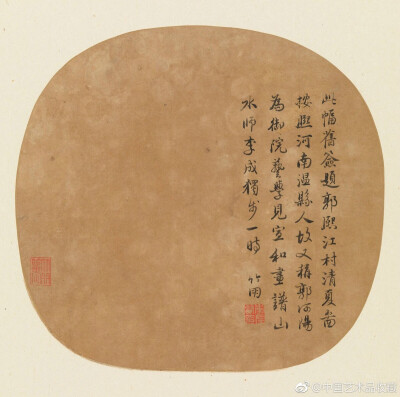 此幅舊簽題郭熙江村清夏面
按熙河南溫縣人故又稱郭河陽
為御院藝學見宣和畫譜山
水師李成獨步一時 竹朋
@中国艺术品收藏